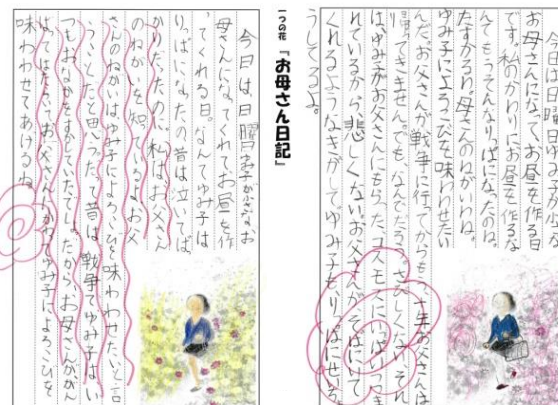 今日は日曜、ゆみ子が小さな
お母さんになって、お昼を作る日
です。私のかわりにお昼を作るな
んてもうそんなりっぱになったのね。
たすかるわ。お母さんのねがいわね。
ゆみ子によろこびを味わわせたい
んだ。お父さんが戦争に行ってからもう十年お父さんは
てきません。でも、なんでだろう、さびしくない。それ
はゆみ子がお父さんにもらった、コスモスにいっぱいつつま
れているから、悲しくない。お父さんがそばにいて
くれるようなきがして。ゆみ子もりっぱにせいちょ
うしてるよ。
一つの花『お母さん日記』
今日は、日曜、ゆみ子が小さなお
母さんになってくれてお昼を作
ってくれる日。なんてゆみ子は
りっぱになったの昔は泣いてば
かりだったのに、私はお父さん
のねがいを知っているよ。お父
さんのねがいはゆみ子によろこびを味わわせたいと言
うことだと思ったって昔は、戦争でゆみ子はい
つもおなかをすかしていたでしょ。だから、お母さんががん
ばってはたらいて、お父さんにかわってゆみ子によろこびを
味わわせてあげるね。